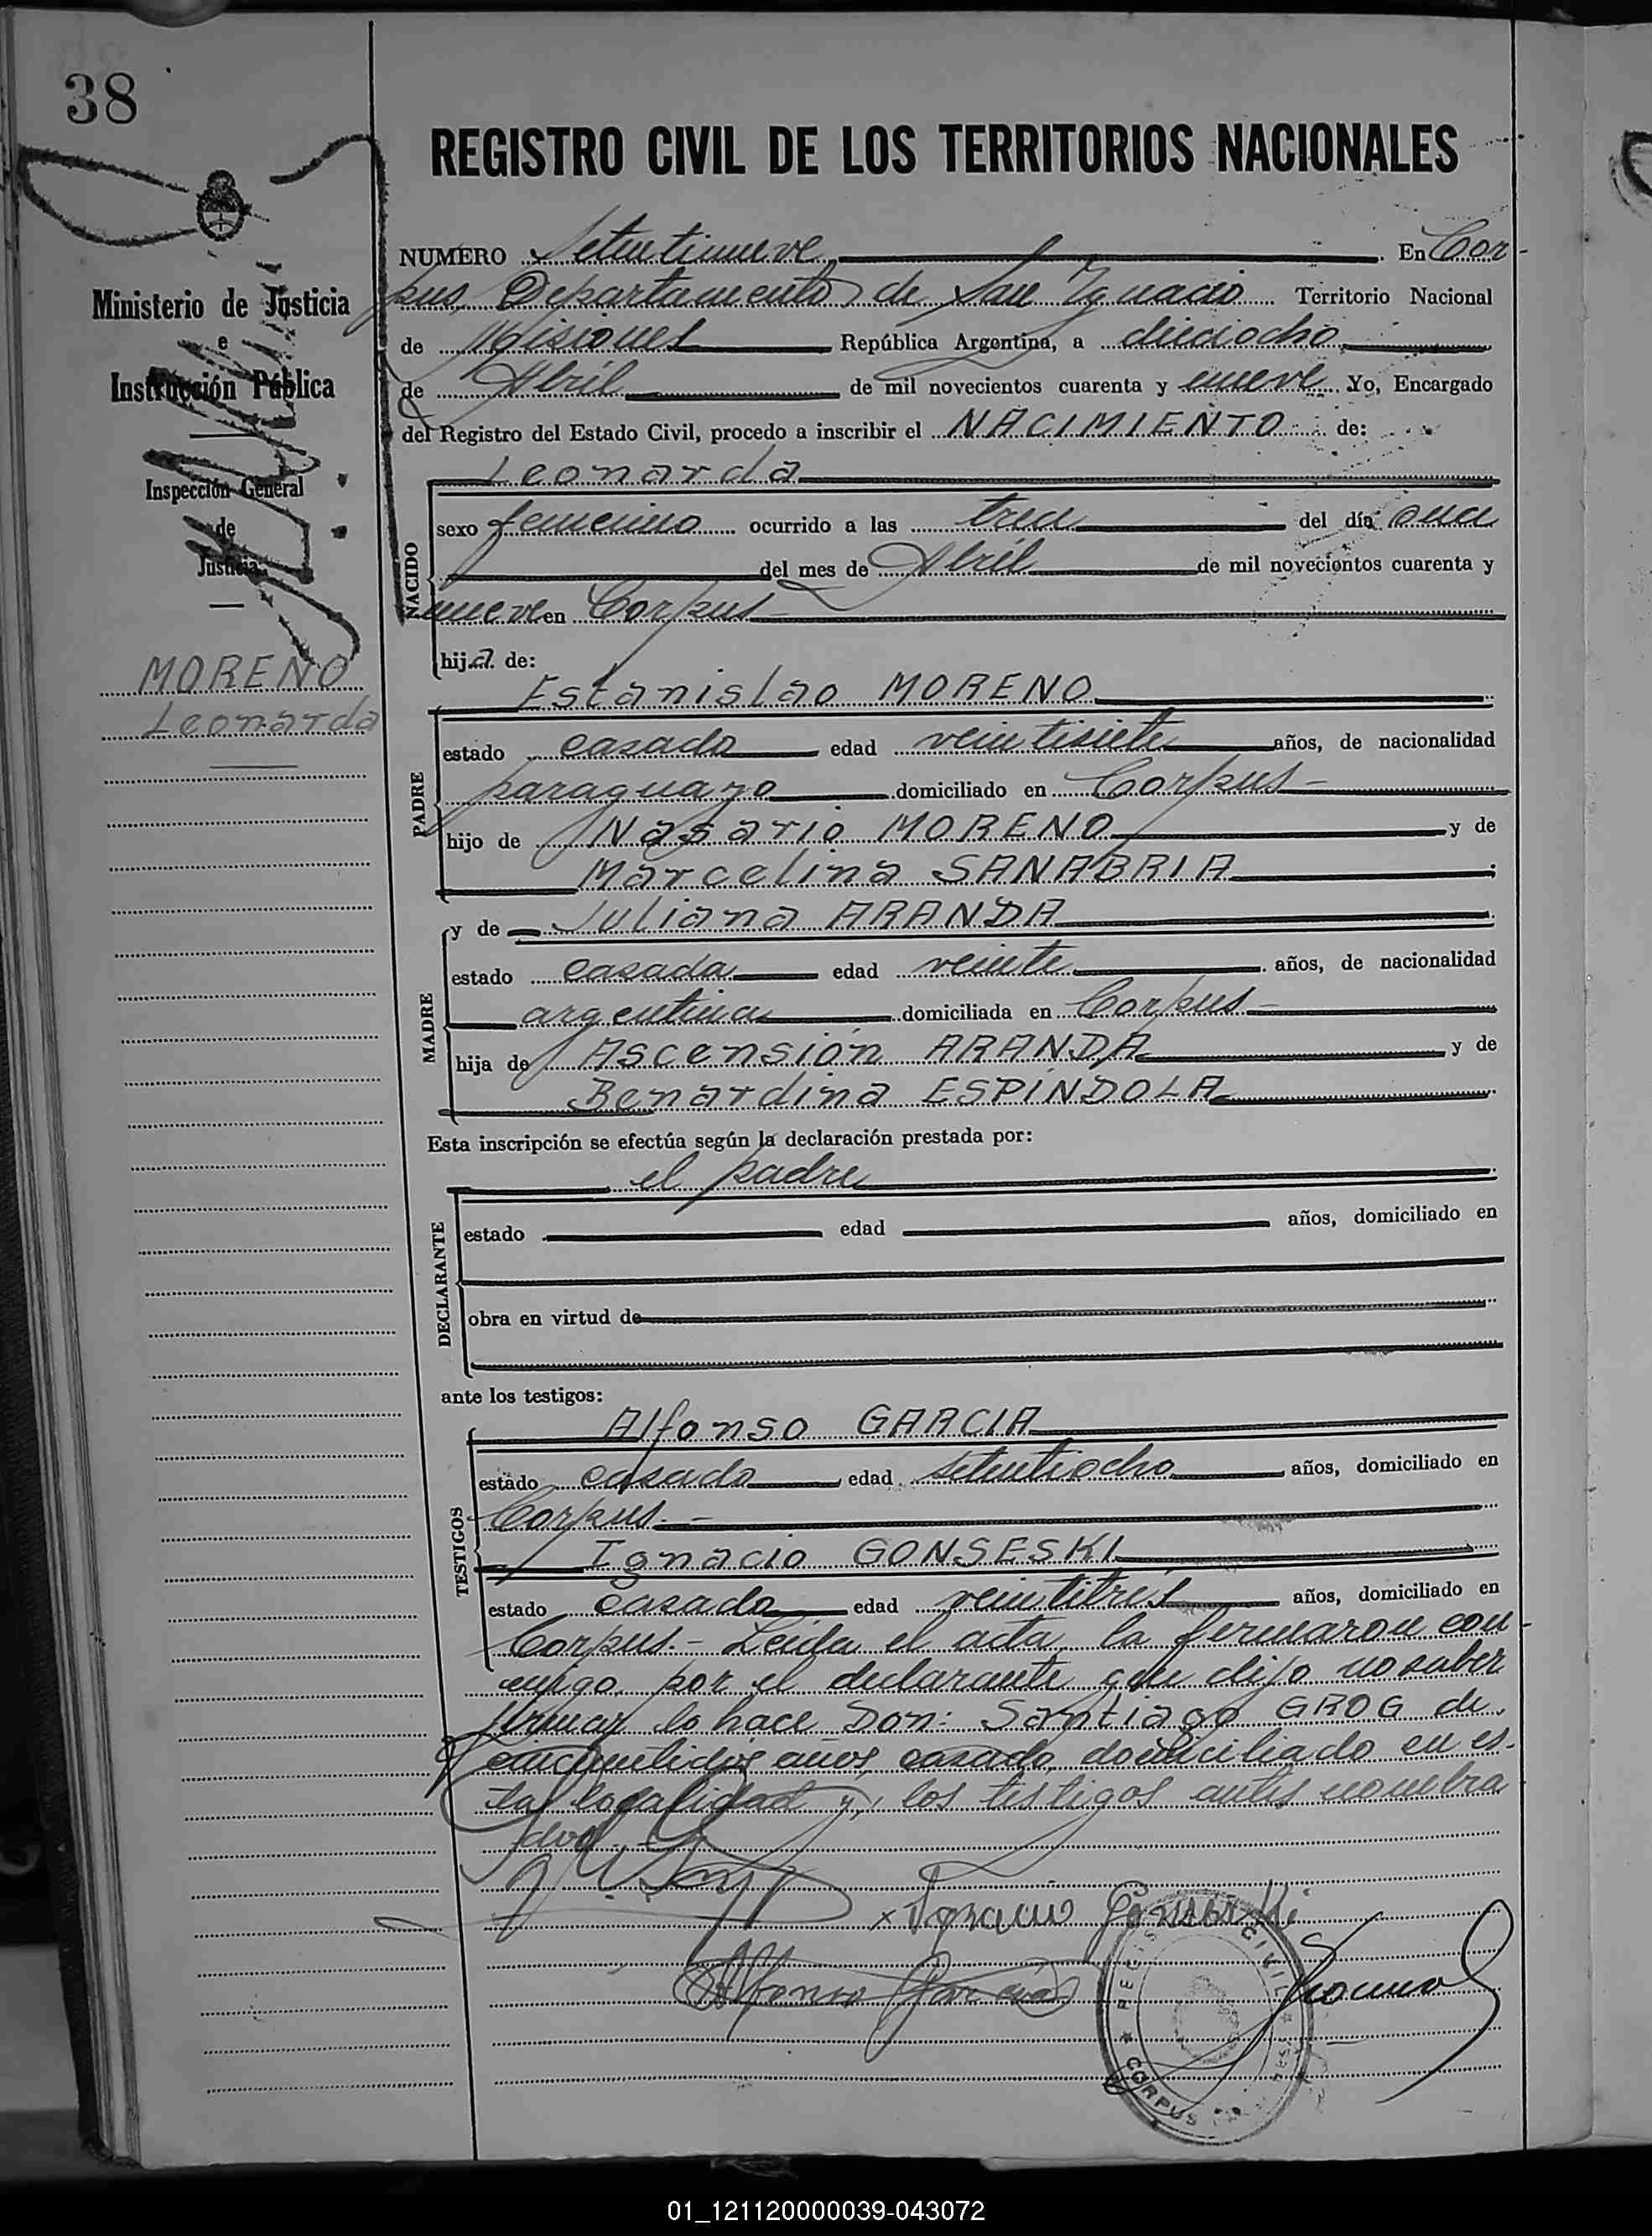 38
REGISTRO CIVIL DE LOS TERRITORIOS NACIONALES
Ministerio de Justicia
e
Instrucción Pública
Inspección General
de
Justicia
MORENO
Leonarda
NUMERO Setentinueve. En Cor-
pus, Departamento de San Ignacio Territorio Nacional
de Misiones República Argentina, a dieciocho
de Abril de mil novecientos cuarenta y nueve Yo, Encargado
del Registro del Estado Civil, procedo a inscribir el NACIMIENTO de:
Leonarda
NACIDO
sexo femenino ocurrido a las trece del día once
del mes de Abril de mil novecientos cuarenta y
nueve en Corpus
hija de:
Estanislao MORENO
PADRE
estado casado edad veintisiete años, de nacionalidad
paraguayo domiciliado en Corpus-
hijo de Nasario MORENO y de
Marcelina SANABRIA;
y de Juliana ARANDA
MADRE
estado casada edad veinte años, de nacionalidad
argentina domiciliada en Corpus-
hija de Ascensión ARANDA y de
Benardina ESPINDOLA
Esta inscripción se efectúa según la declaración prestada por:
el padre
DECLARANTE
estado edad años, domiciliado en
obra en virtud de
ante los testigos:
Alfonso GARCIA
TESTIGOS
estado casado edad setentiocho años, domiciliado en
Corpus.-
Ignacio GONSESKI
estado casado edad veintitrés años, domiciliado en
Corpus.- Leída el acta, la firmaron con-
migo, por el declarante que dijo no saber
firmar lo hace Don: Santiago GROG de
cincuentidos años, casado, domiciliado en es-
ta localidad y, los testigos antes nombra
dos.
x Ignacio Gonseski
Alfonso Garcia
REGISTRO CIVIL
CORPUS
01_121120000039-043072